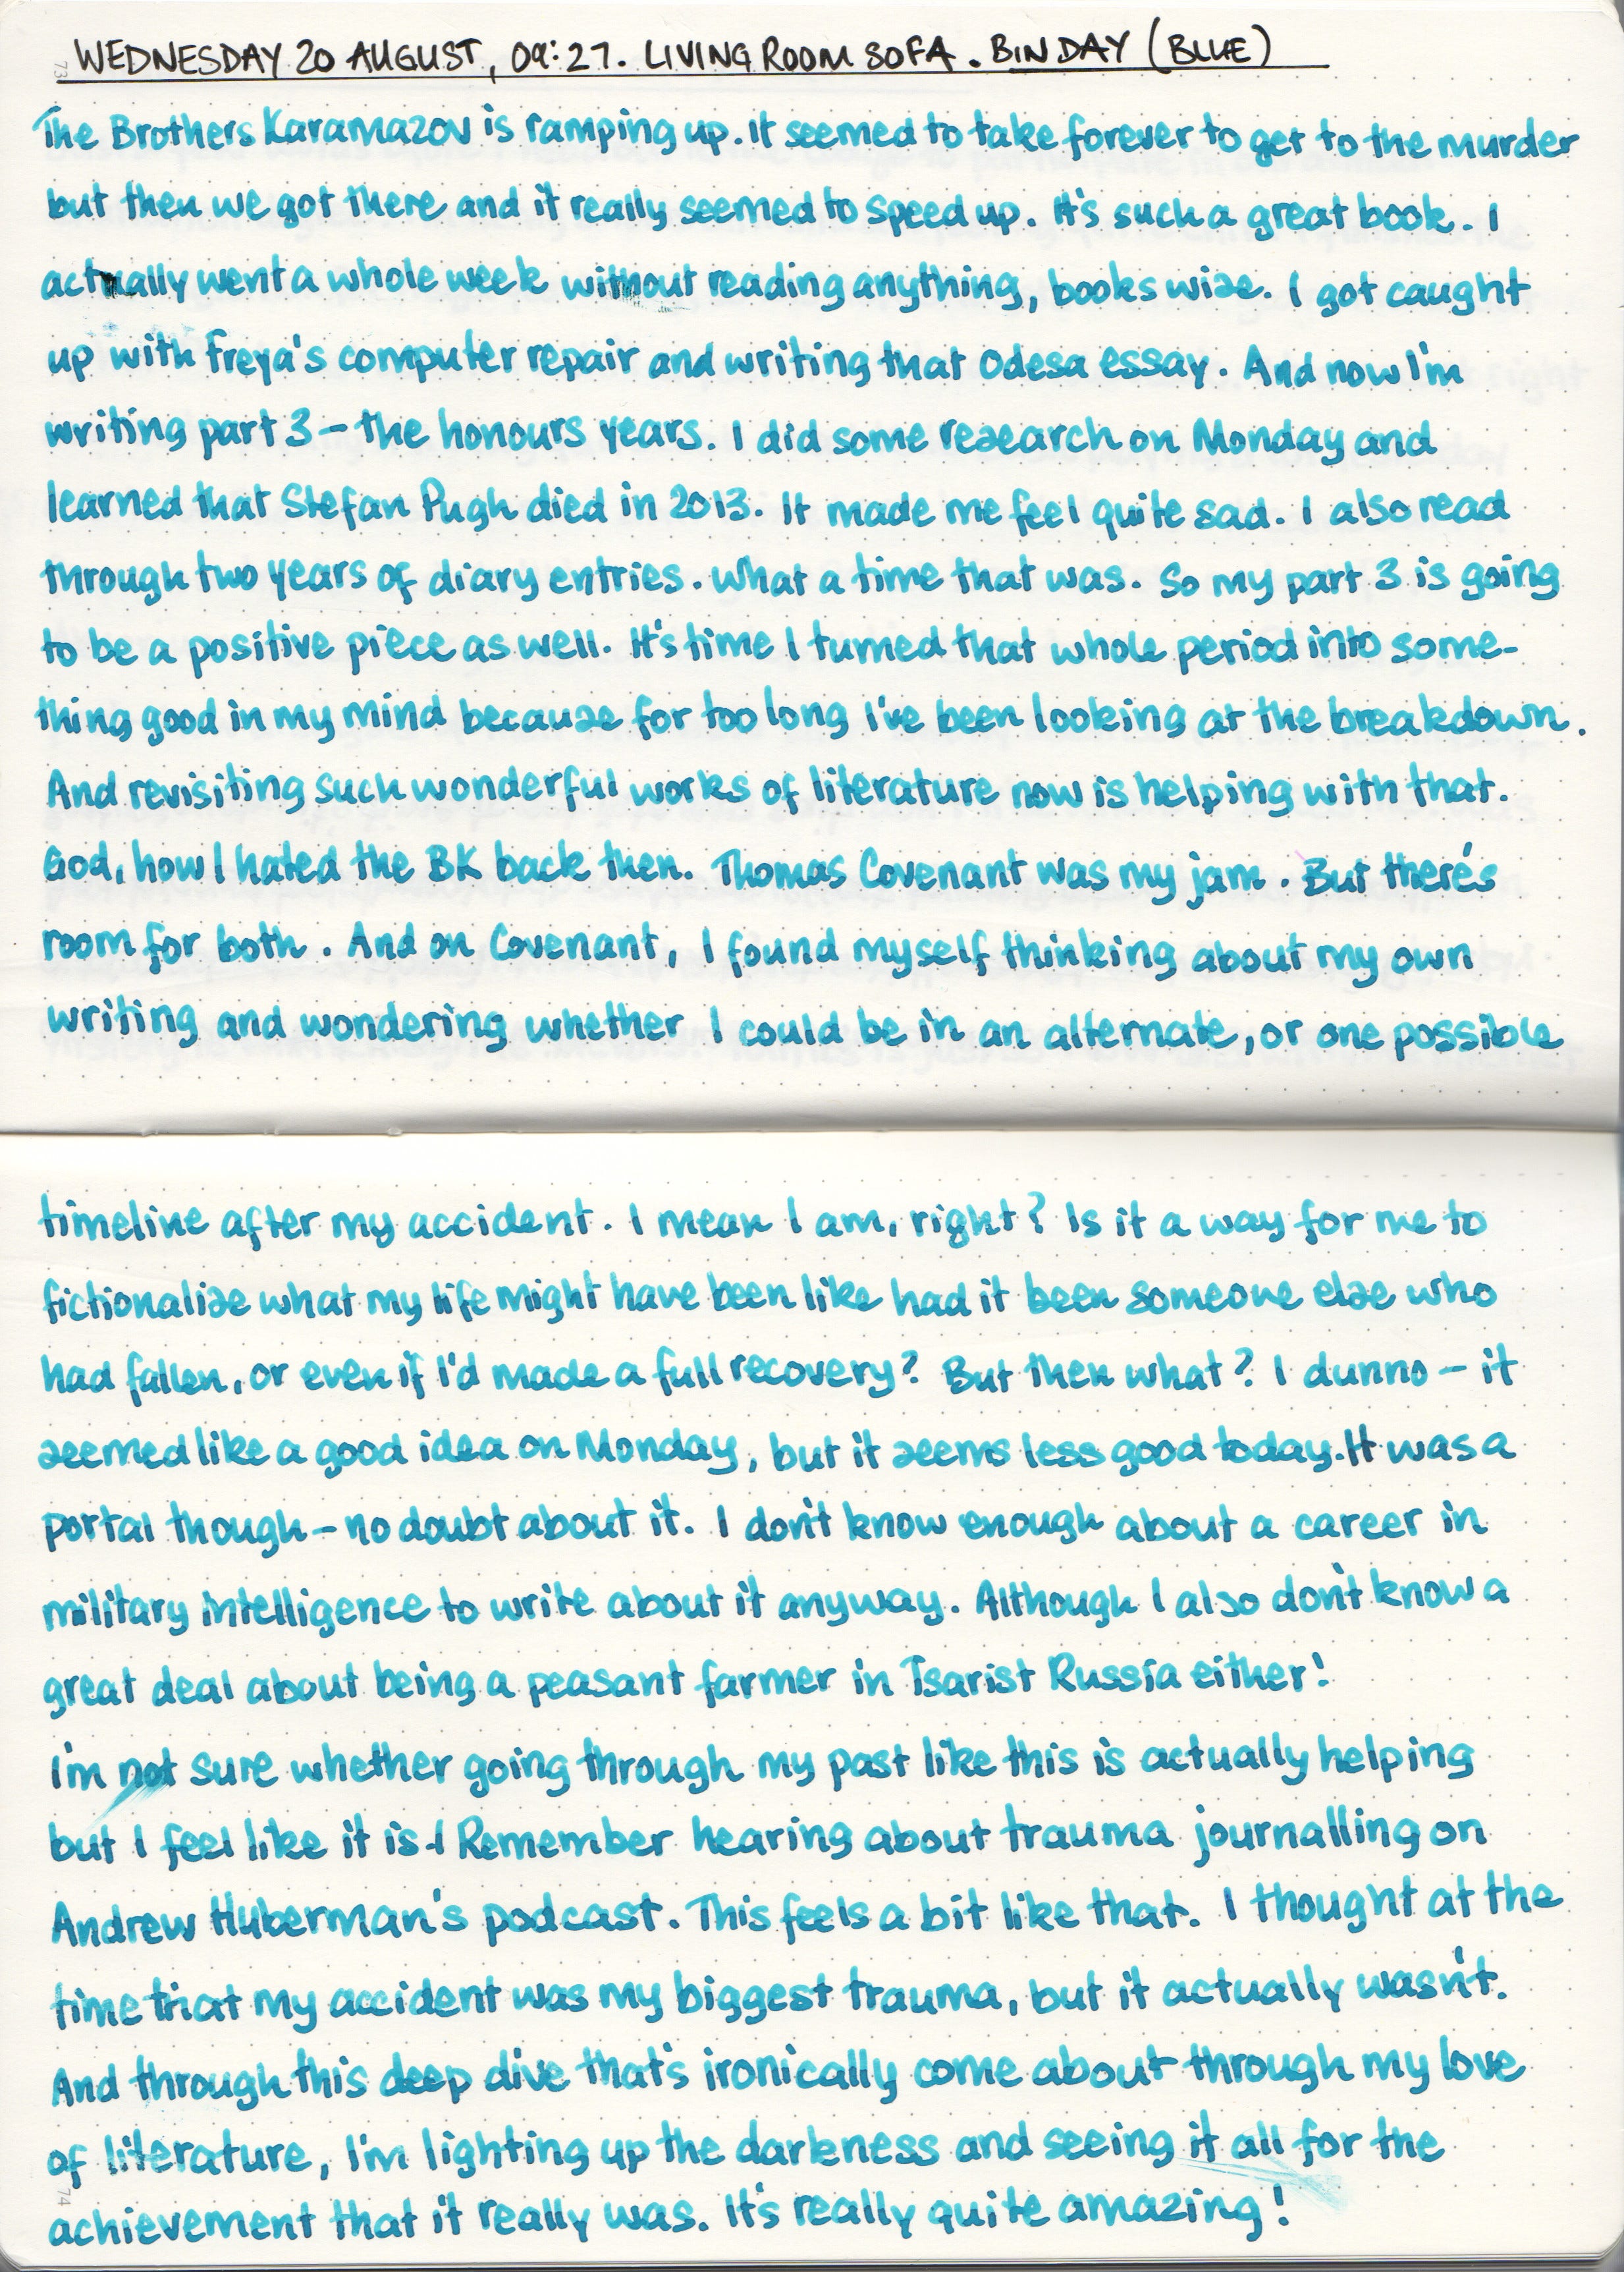 WEDNESDAY 20 AUGUST, 09:27. LIVING ROOM SOFA. BIN DAY (BLUE)
The Brothers Karamazov is ramping up. It seemed to take forever to get to the murder
but then we got there and it really seemed to speed up. It's such a great book. I
actually went a whole week without reading anything, books wise. I got caught
up with Freya's computer repair and writing that Odesa essay. And now I'm
writing part 3 - the honours years. I did some research on Monday and
learned that Stefan Pugh died in 2013. It made me feel quite sad. I also read
through two years of diary entries. What a time that was. So my part 3 is going
to be a positive piece as well. It's time I turned that whole period into some-
thing good in my mind because for too long I've been looking at the breakdown.
And revisiting such wonderful works of literature now is helping with that.
God, how I hated the BK back then. Thomas Covenant was my jam. But there's
room for both. And on Covenant, I found myself thinking about my own
writing and wondering whether I could be in an alternate, or one possible
73
timeline after my accident. I mean I am, right? Is it a way for me to
fictionalise what my life might have been like had it been someone else who
had fallen, or even if I'd made a full recovery? But then what? I dunno - it
seemed like a good idea on Monday, but it seems less good today. It was a
portal though - no doubt about it. I don't know enough about a career in
military intelligence to write about it anyway. Although I also don't know a
great deal about being a peasant farmer in Tsarist Russia either!
I'm not sure whether going through my past like this is actually helping
but I feel like it is. I Remember hearing about trauma journalling on
Andrew Huberman's podcast. This feels a bit like that. I thought at the
time that my accident was my biggest trauma, but it actually wasn't.
And through this deep dive that's ironically come about through my love
of literature, I'm lighting up the darkness and seeing it all for the
achievement that it really was. It's really quite amazing!
74